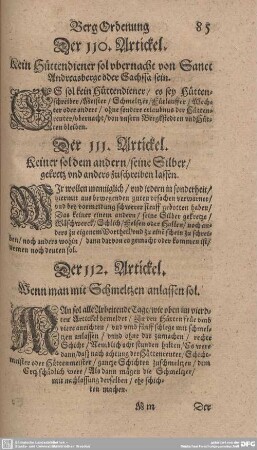 Berg Ordenung 85
Der 110. Artickel.
Kein Hüttendiener sol vbernacht von Sanct
Andreasberge oder Sachssa sein.
ES sol kein Hüttendiener / es sey Hütten-
schreiber / Meister / Schmeltzer / Fürlauffer / Wech-
ter oder andere / ohne sondere erlaubnus der Hütten-
reuter / vbernacht / von vnsern Bergkstedten vnd Hüt-
ten bleiben.
Der 111. Artickel.
Keiner sol dem andern / seine Silber /
gekretz vnd anders zuschreiben lassen.
WIr wollen menniglich / vnd jedern in sonderheit /
hiermit aus bewegenden guten vrsachen verwarnet /
vnd bey vermeidung schwerer straff geboten haben /
Das keiner einem andern / seine Silber gekretze /
Wäschwerck / Schlich / Helsen oder Halter / noch an-
ders zu eigenem Vortheil vnd zu
bern / noch anders wogin / dann darvon es gemacht oder kommen ist /
nemen noch deuten sol.
Der 112. Artickel.
Wenn man mit Schmeltzen anlassen sol.
MAn sol alle Arbeitende Tage / wie oben im vierd-
ten Artickel bemeldet / Zu den Hütten früe vmb
viere anreichen / vnd vmb fünff schlege mit schmel-
tzen anlassen / vnnd ohne das zumachen / rechte
Schicht / Nemlich acht stunden halten / Es were
dann / das nach achtung der Hüttenreuter, Schicht-
meister oder Hüttenmeister / gantze Schichten zuschmeltzen / dem
Ertz schädlich were / Als dann mügen die Schmeltzer /
mit nachlassung derselben / ehe schich-
ten machen.
M iij Der